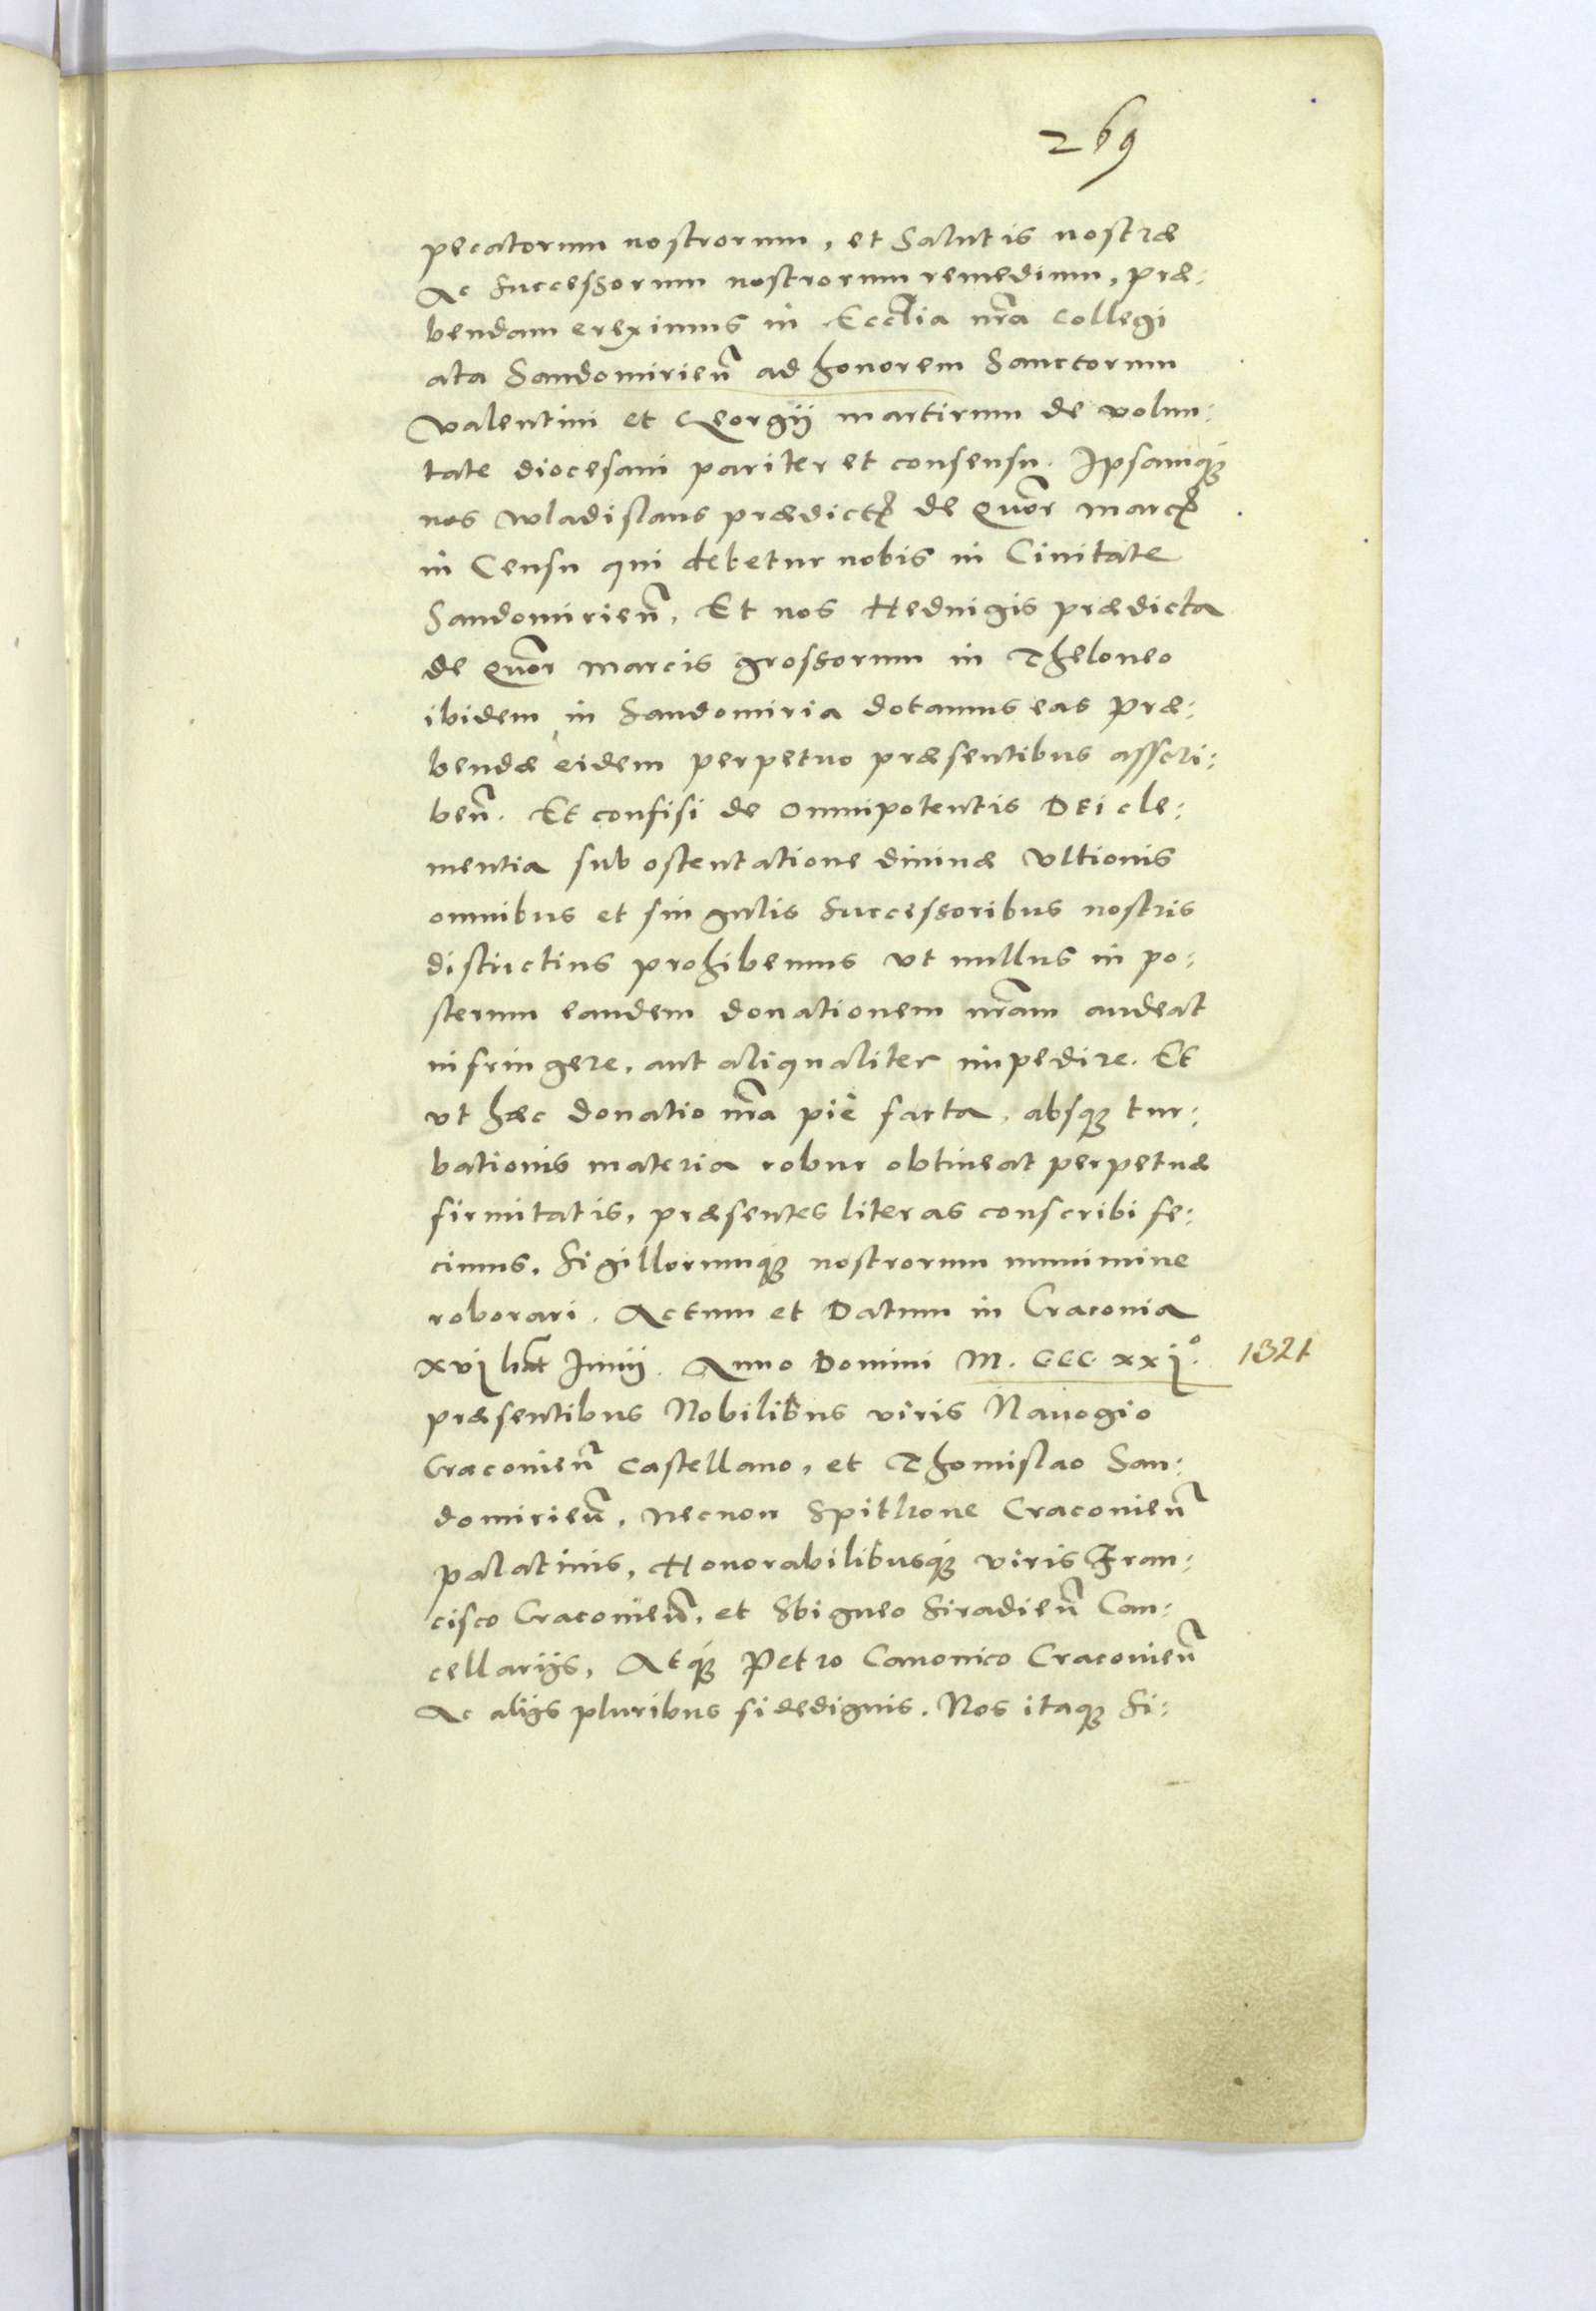 269
pecatorum nostrorum, et Salutis nostræ
Ac Successorum nostrorum remedium, præ:
bendam ereximus in Ecclia nr̃a Collegi
ata Sandomirien̄ ad honorem Sanctorum
Valentini et Georgij martirum de volun:
tate diocesani pariter et consensu. Ipsamq́ꝫ
nos Wladislaus prædictꝰ de quor̃ marcꝭ
in Censu qui debetur nobis in Ciuitate
Sandomirien̄, Et nos Heduigis prædicta
de quor̃ marcis grossorum in Theloneo
ibidem in Sandomiria dotamus eas Præ:
bendæ eidem perpetuo præsentibus asscri:
ben̄. Et confisi de Omnipotentis DEI cle:
mentia sub ostentatione diuinæ Vltionis
omnibus et singulis Successoribus nostris
districtius prohibemus vt nullus in po:
sterum eandem donationem nr̃am audeat
infringere, aut aliqualiter impedire. Et
vt hæc donatio nr̃a piè facta, absqꝫ tur:
bationis materia robur obtineat perpetuæ
firmitatis, præsentes literas conscribi fe:
cimus, Sigillorumq́ꝫ nostrorum munimine
roborari. Actum et Datum in Cracouia
xvj Junij. Anno Domini M. CCC xxjº. 1321
præsentibus Nobilibus viris Nauogio
Cracouien̄ Castellano, et Thomislao San:
domirien̄, Necnon Spithone Cracouien̄
palatinis, Honorabilibusq́ꝫ viris Fran:
cisco Cracouien̄, et Sbigneo Siradien̄ Can:
cellarijs, Atq́ꝫ Petro Canonico Cracouien̄
Ac alijs pluribus fidedignis. Nos itaqꝫ Si: